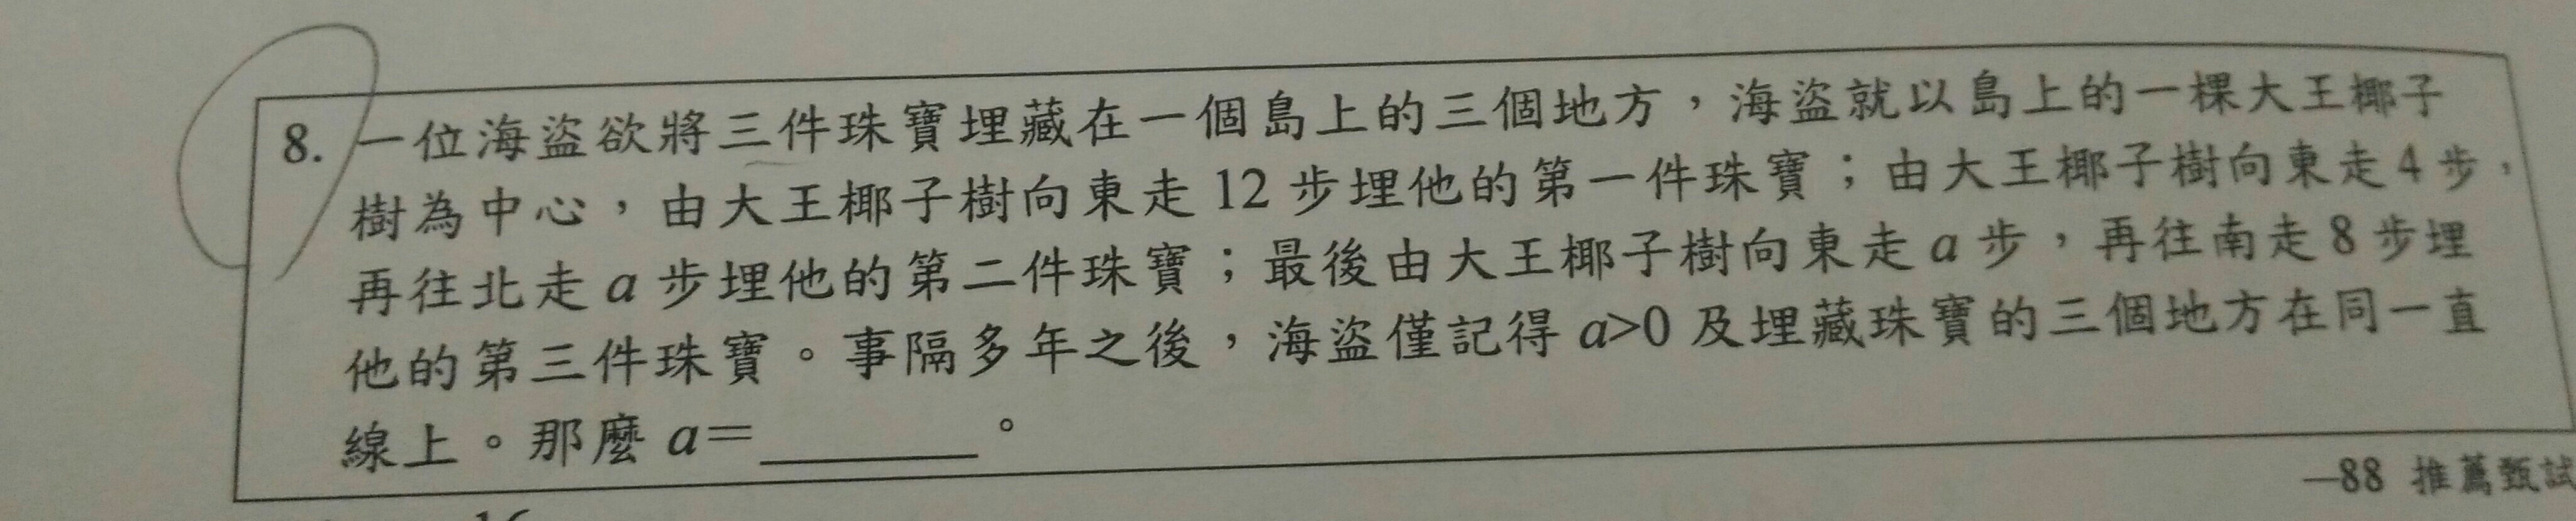 8. 一位海盜欲將三件珠寶埋藏在一個島上的三個地方，海盜就以島上的一棵大王椰子
樹為中心，由大王椰子樹向東走 12 步埋他的第一件珠寶；由大王椰子樹向東走 4 步，
再往北走 a 步埋他的第二件珠寶；最後由大王椰子樹向東走 a 步，再往南走 8 步埋
他的第三件珠寶。事隔多年之後，海盜僅記得 a>0 及埋藏珠寶的三個地方在同一直
線上。那麼 a=______。
—88 推薦甄試